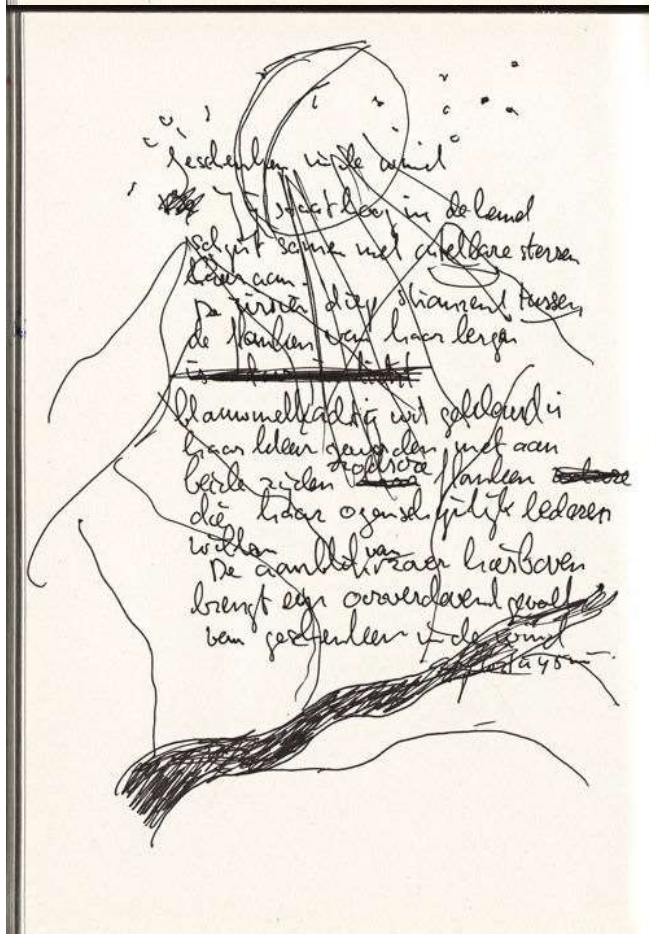 Geschenken in de wind
staat hoog in de hemel
schijnt samen met ontelbare sterren
haar aan.
De rivier diep stromend tussen
de flanken van haar bergen
blauwmelkachtig wit gekleurd is
haar kleur geworden met aan
beide zijden rodroze flanken
die haar ogenschijnlijk bedaren
willen
De aanblik van haar hierboven
brengt een oorverdovend geweld
van geschenken in de wind